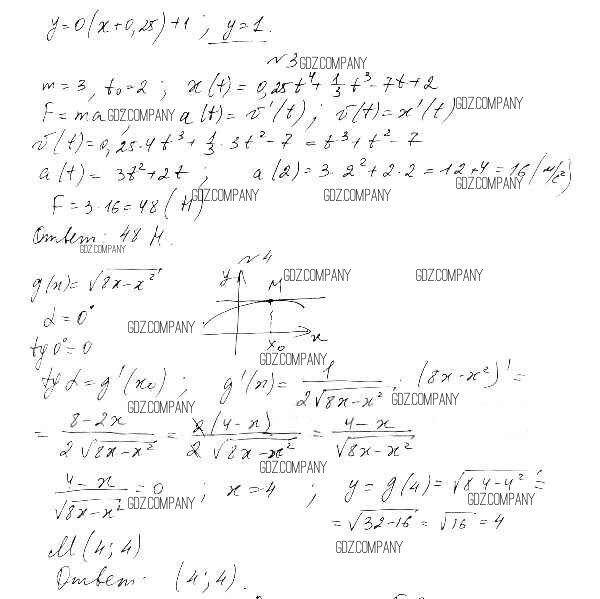 y=0(x+0,25)+1 ; y=1.
№3 GDZ.COMPANY
m=3, t₀=2 ; x(t)=0,25t⁴+1/3 t³-7t+2
F=ma GDZ.COMPANY a(t)=v'(t); v(t)=x'(t) GDZ.COMPANY
v(t)=0,25·4t³+1/3·3t²-7=t³+t²-7
a(t)=3t²+2t ; a(2)=3·2²+2·2=12+4=16(м/с²)
GDZ.COMPANY GDZ.COMPANY GDZ.COMPANY
F=3·16=48(Н)
Ответ: 48 Н.
GDZ.COMPANY
№4
g(x)=√(8x-x²) y M GDZ.COMPANY GDZ.COMPANY
α=0°
GDZ.COMPANY
tg0°=0 x₀ x
GDZ.COMPANY
tgα=g'(x₀) ; g'(x)=1/(2√(8x-x²))·(8x-x²)'=
GDZ.COMPANY GDZ.COMPANY
=(8-2x)/(2√(8x-x²))=2(4-x)/(2√(8x-x²))=(4-x)/√(8x-x²)
GDZ.COMPANY
(4-x)/√(8x-x²)=0 ; x=4 ; y=g(4)=√(8·4-4²)=
GDZ.COMPANY GDZ.COMPANY
=√(32-16)=√16=4
M(4;4)
GDZ.COMPANY
Ответ: (4;4).